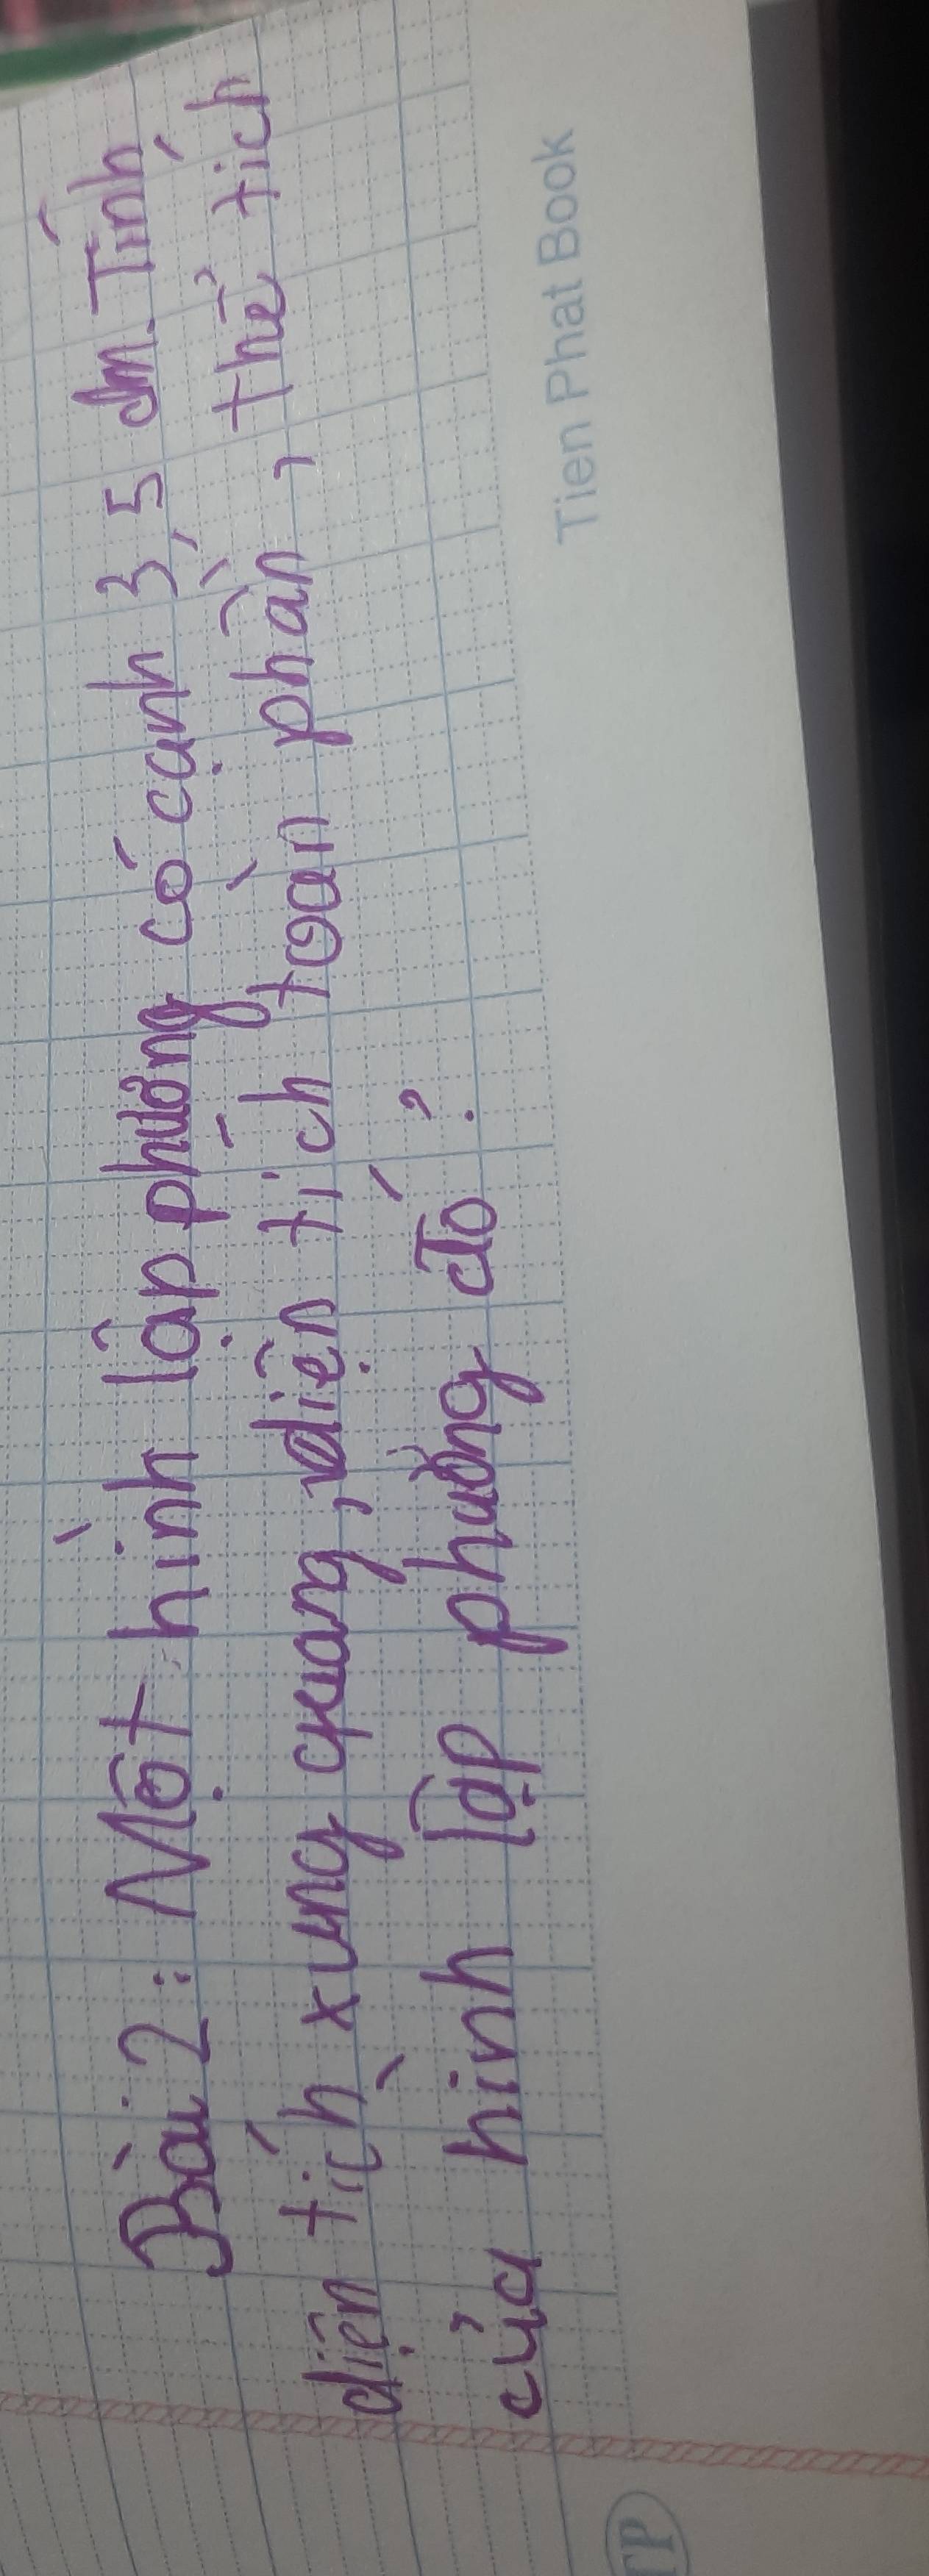 Bài 2: Một hình lập phương có cạnh 3,5 dm. Tính
diện tích xung quang, diện tích toàn phần, thể tích
của hình lập phương đó?
Tien Phat Book
TP